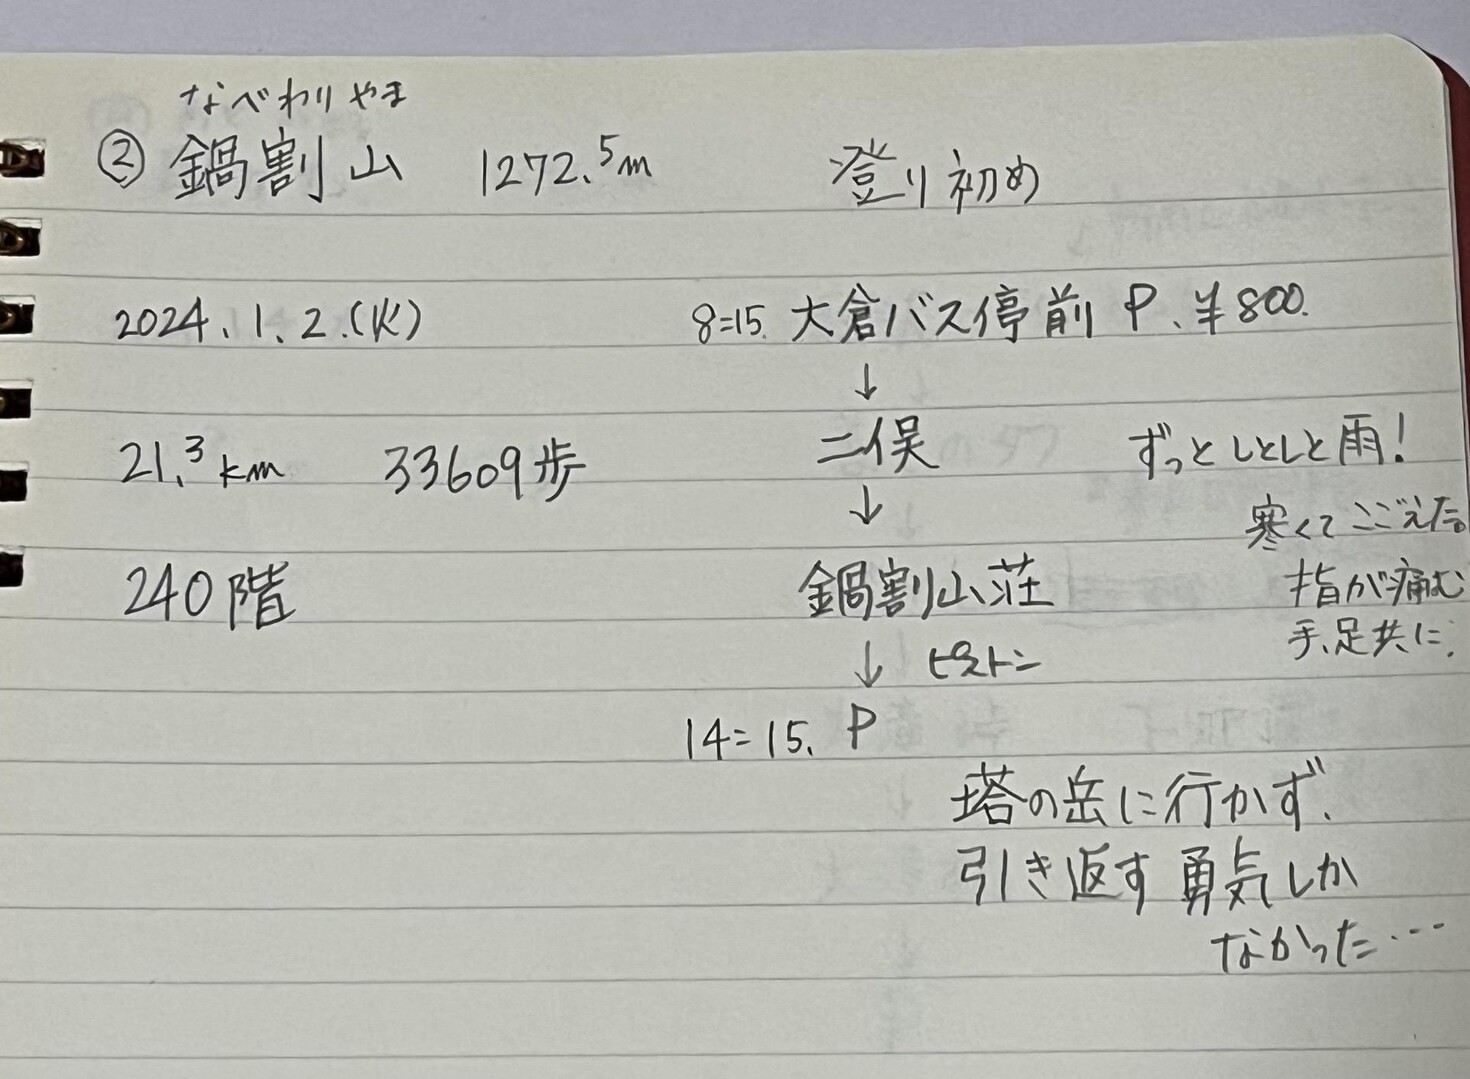 なべわりやま
② 鍋割山 1272.5m 登り初め
2024.1.2.(火) 8=15. 大倉バス停前 P. ¥800.
↓
21.3km 33609歩 二俣 ずっとしとしと雨!
↓ 寒くてこごえた。
240階 鍋割山荘 指が痛む
手、足共に.
↓ ピストン
14=15. P
塔の岳に行かず、
引き返す勇気しか
なかった…